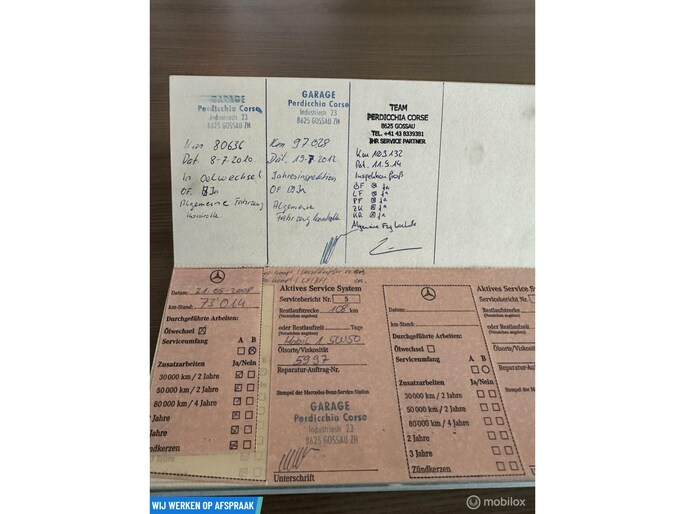 GARAGE
Perdicchia Corse
Industriestr. 23
8625 GOSSAU ZH
Km 80636
Dat. 8-7-2010
Oelwechsel
OF. Ja
Allgemeine Fahrzeug
kontrolle
GARAGE
Perdicchia Corse
Industriestr. 23
8625 GOSSAU ZH
Km 97028
Dat. 19-7-2012
Jahresinspektion
OF Ja
Allgemeine
Fahrzeug kontrolle
TEAM
PERDICCHIA CORSE
8625 GOSSAU
TEL. +41 43 8339381
IHR SERVICE PARTNER
Km 109132
Dat. 11.9.14
Inspektion Groß
ÖF Ja
LF Ja
PF Ja
ZK Ja
KR Ja
Allgemeine
Datum: 21-05-2008
km-Stand: 73'014
Durchgeführte Arbeiten:
Ölwechsel
Serviceumfang A B
Zusatzarbeiten Ja/Nein
30 000 km / 2 Jahre
50 000 km / 2 Jahre
80 000 km / 4 Jahre
Jahre
Jahre
kerzen
Aktives Service System
Servicebericht Nr. 5
Restlaufstrecke 108 km
(Vorzeichen angeben)
oder Restlaufzeit Tage
(Vorzeichen angeben)
Mobil 1 5W50
Ölsorte/Viskosität
5997
Reparatur-Auftrag-Nr.
Stempel der Mercedes-Benz-Service-Station
GARAGE
Perdicchia Corse
Industriestr. 23
8625 GOSSAU ZH
Unterschrift
Datum:
km-Stand:
Durchgeführte Arbeiten:
Ölwechsel
Serviceumfang A B
Zusatzarbeiten Ja/Nein
30 000 km / 2 Jahre
50 000 km / 2 Jahre
80 000 km / 4 Jahre
2 Jahre
3 Jahre
Zündkerzen
Aktives Serv
Servicebericht
Restlaufstreck
(Vorzeichen angeben)
oder Restlaufz
(Vorzeichen angeben)
Ölsorte/Visko
Reparatur-Auf
Stempel der Merce
Unterschrift
WIJ WERKEN OP AFSPRAAK
mobilox